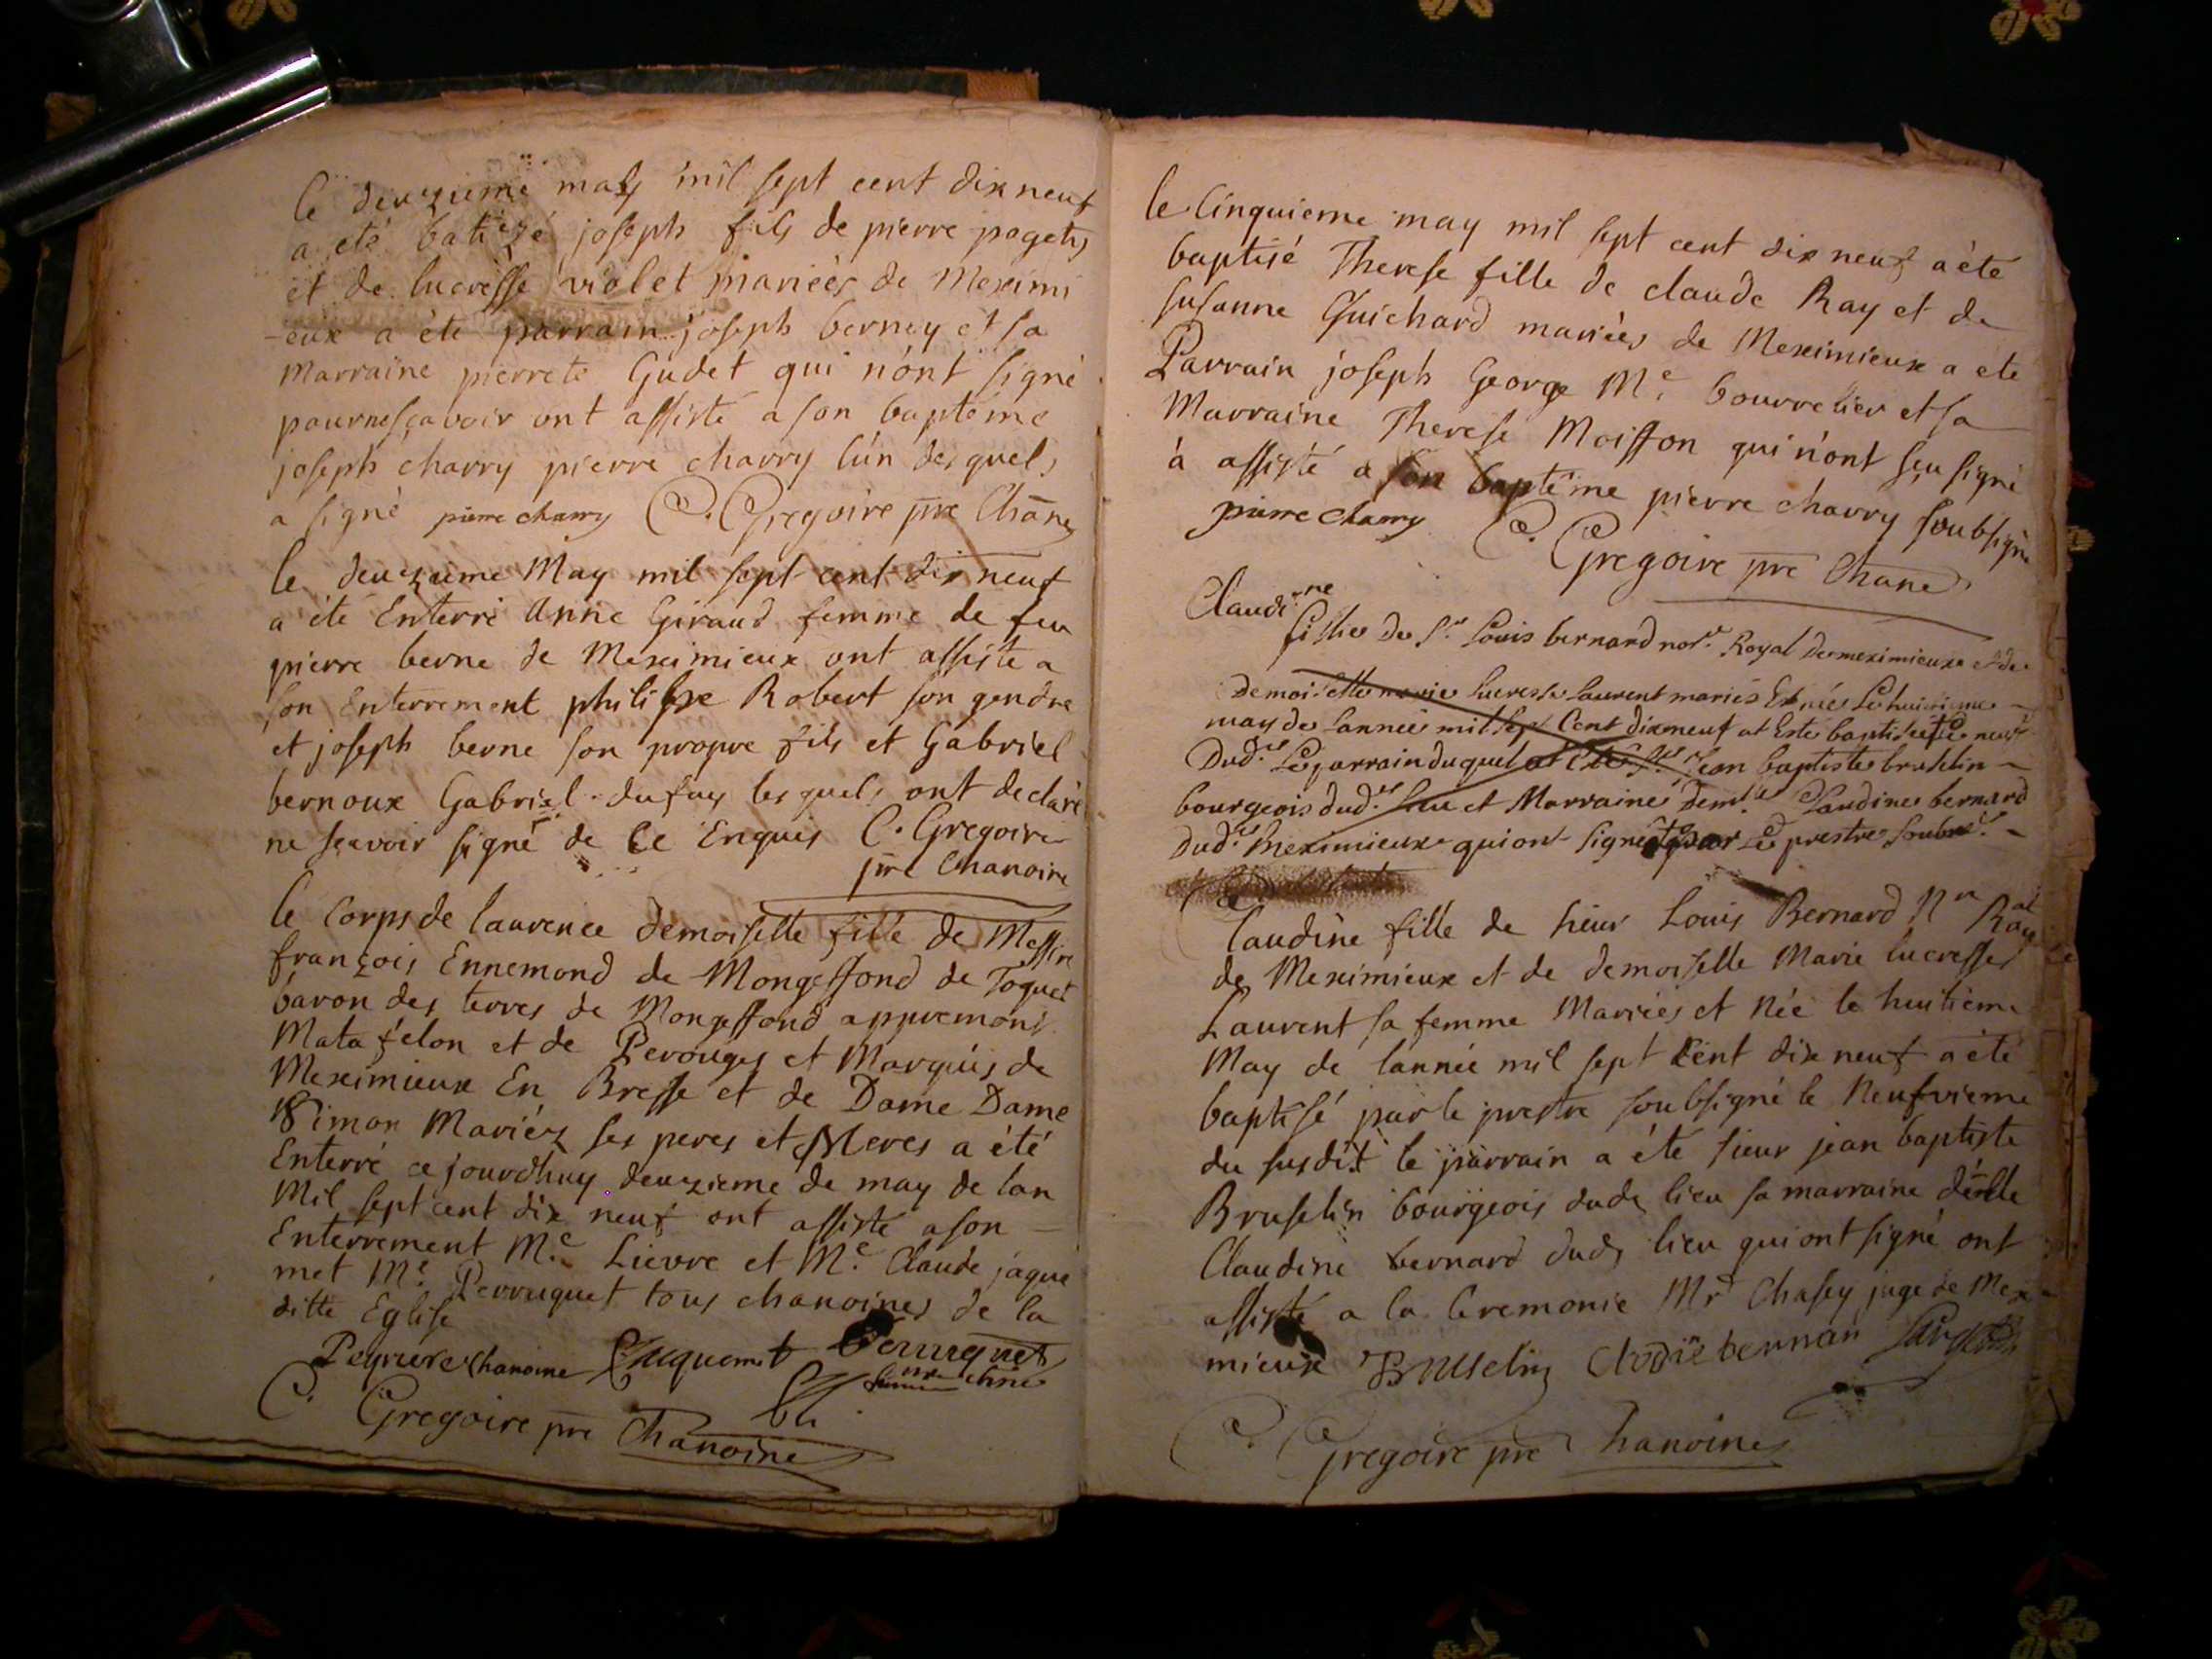 le deuzieme may mil sept cent dix neuf
a eté batizé joseph fils de pierre pagety
et de lucresse violet mariées de Meximi
-eux a été parrain joseph berney et sa
Marraine pierrete Gudet qui n'ont signé
pour ne sçavoir ont assisté a son baptême
joseph charry pierre charry l'un desquels
a signé pierre charry C. Gregoire pre Chane
le deuzieme May mil sept cent dix neuf
a été Enterré Anne Giraud femme de feu
pierre berne de Meximieux ont assisté a
son Enterrement philippe Robert son gendre
et joseph berne son propre fils et Gabriel
bernoux Gabriel dufay lesquels ont declaré
ne sçavoir signé de ce Enquis C. Gregoire
pre Chanoine
le Corps de laurence demoiselle fille de Messire
françois Ennemond de Mongeffond de Toquet
baron des terres de Mongeffond appremont
Matafelon et de Perouges et Marquis de
Meximieux En Bresse et de Dame Dame
Simon Mariéz ses peres et Meres a été
Enterré ce jourdhuy deuzieme de may de lan
Mil sept cent dix neuf ont assisté a son
Enterrement Me. Lievre et Me. Claude jaque
met Me. Perruquet tous chanoines de la
ditte Eglise
Peyriere chanoine Jaquemet Perruquet
C. Gregoire pre Chanoine
le Cinquieme may mil sept cent dix neuf a été
baptisé Therese fille de claude Ray et de
susanne Guichard mariées de Meximieux a eté
Parrain joseph George Me. bourrelier et sa
Marraine Therese Moisson qui n'ont sçu signé
à assisté a son baptême pierre charry soubsigné
pierre charry C. Gregoire pre Chane
Claudine
fillie de Sr Louis bernard nore Royal de meximieux et de
demoiselle marie lucresse laurent mariés Et née Le huitieme
may de Lannée mil sept Cent dixneuf at Esté baptisée le neuf
Dud. Le parrain duquel at Esté Sr jean baptiste bruselin
bourgeois dud. lieu et Marraine demlle Claudine bernard
dud. Meximieux qui ont signé par Le prestre soubné
Claudine fille de sieur Louis Bernard Nre Ral
de Meximieux et de demoiselle Marie lucresse
Laurent sa femme Mariées et Née le huitieme
May de lannée mil sept Cent dix neuf a été
baptisé par le prestre soubsigné le Neufvieme
du susdit le parrain a été sieur jean baptiste
Bruselin bourgeois dud lieu sa marraine delle
Claudine bernard dud lieu qui ont signé ont
assisté a la Ceremonie Mr Chasey juge de Mexi-
mieux Bruselin Clodie bernar
C. Gregoire pre Chanoine